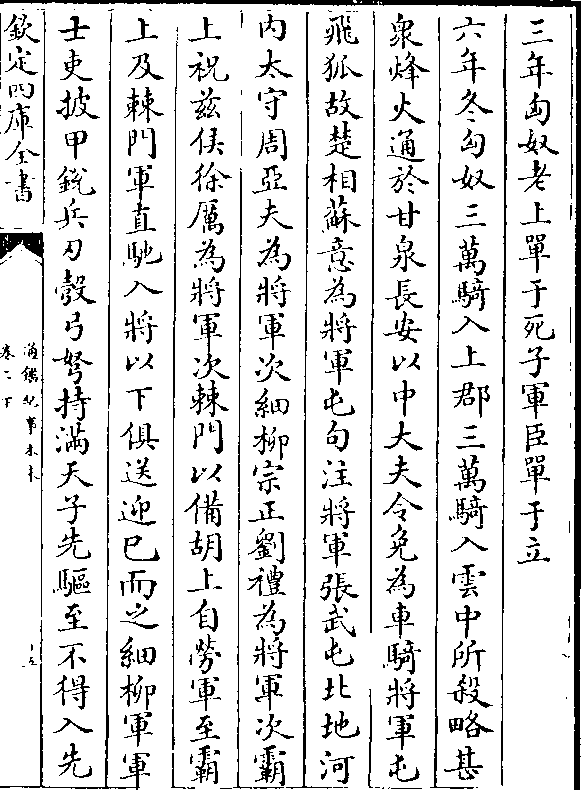 三年匈奴老上單于死子軍臣單于立
六年冬匈奴三萬騎入上郡三萬騎入雲中所殺略甚
衆烽火通於甘泉長安以中大夫令免為車騎將軍屯
飛狐故楚相蘇意為將軍屯句注將軍張武屯北地河
内太守周亞夫為將軍次細柳宗正劉禮為將軍次霸
上祝兹侯徐厲為將軍次棘門以備胡上自勞軍至霸
上及棘門軍直馳入將以下俱送迎已而之細柳軍軍
士吏披甲銳兵刃彀弓弩持滿天子先驅至不得入先
欽定四庫全書
通鑑紀事本末
卷二下
十五